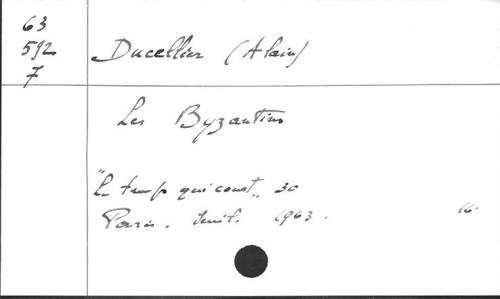 63
592
7
Ducellier (Alain)
Les Byzantins
"Le temps qui court" 30
Paris. Seuil. 1963. 16°